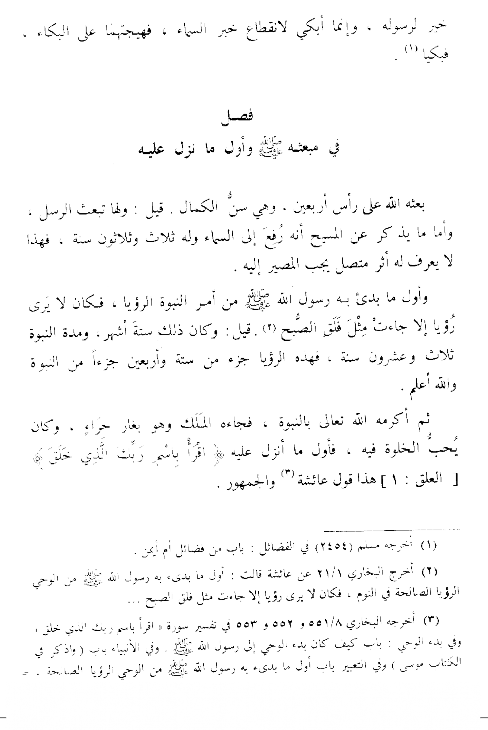 خبر لرسوله . وإنما أبكي لانقطاع خبر السماء ، فهيجتهما على البكاء .
فبكيا (١) .
فصل
في مبعثه ﷺ وأول ما نزل عليه
بعثه الله على رأس أربعين . وهي سنُّ الكمال . قيل : ولها تبعث الرسل ،
وأما ما يذكر عن المسيح أنه رُفع إلى السماء وله ثلاث وثلاثون سنة ، فهذا
لا يعرف له أثر متصل يجب المصير إليه .
وأول ما بدئ به رسول الله ﷺ من أمر النبوة الرؤيا ، فكان لا يَرى
رُؤيا إلا جاءتْ مِثْلَ فَلَقِ الصُّبح (٢) . قيل : وكان ذلك ستةَ أشهر . ومدة النبوة
ثلاث وعشرون سنة ، فهذه الرؤيا جزء من ستة وأربعين جزءاً من النبوة
والله أعلم .
ثم أكرمه الله تعالى بالنبوة ، فجاءه المَلَك وهو بغار حِرَاءٍ . وكان
يُحبُّ الخلوة فيه ، فأول ما أنزل عليه ﴿ اقْرَأْ بِاسْمِ رَبِّكَ الَّذِي خَلَقَ ﴾
[ العلق : ١ ] هذا قول عائشة (٣) والجمهور .
(١) أخرجه مسلم (٢٤٥٤) في الفضائل : باب من فضائل أم أيمن .
(٢) أخرج البخاري ٢١/١ عن عائشة قالت : أول ما بدىء به رسول الله ﷺ من الوحي
الرؤيا الصالحة في النوم ، فكان لا يرى رؤيا إلا جاءت مثل فلق الصبح ...
(٣) أخرجه البخاري ٥٥١/٨ و ٥٥٢ و ٥٥٣ في تفسير سورة « اقرأ باسم ربك الذي خلق ،
وفي بدء الوحي : باب كيف كان بدء الوحي إلى رسول الله ﷺ . وفي الأنبياء باب ( واذكر في
الكتاب موسى ) وفي التعبير باب أول ما بدىء به رسول الله ﷺ من الوحي الرؤيا الصالحة . =